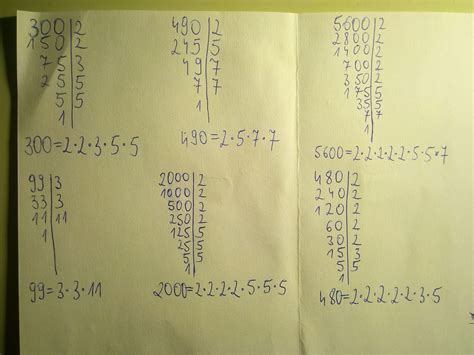 300|2
150|2
75|3
25|5
5|5
1|
300=2·2·3·5·5
490|2
245|5
49|7
7|7
1|
490=2·5·7·7
5600|2
2800|2
1400|2
700|2
350|2
175|5
35|5
7|7
1|
5600=2·2·2·2·2·5·5·7
99|3
33|3
11|11
1|
99=3·3·11
2000|2
1000|2
500|2
250|2
125|5
25|5
5|5
1|
2000=2·2·2·2·5·5·5
480|2
240|2
120|2
60|2
30|2
15|3
5|5
1|
480=2·2·2·2·2·3·5